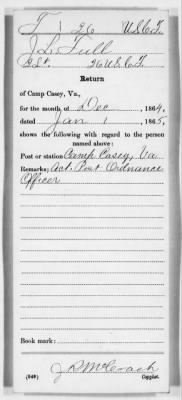 T 1 26 U.S.C.T.
J. L. Tull
2 Lt. 26 U.S.C.T.
Return
of Camp Casey, Va.,
for the month of Dec, 1864.
dated Jan 1, 1865.
shows the following with regard to the person
named above:
Post or station Camp Casey, Va
Remarks: Act. Post Ordnance
Officer
Book mark:
J R McCoach
(649) Copyist.